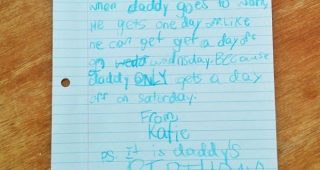 when daddy goes to work,
He gets one day off. Like
he can get get a day off
on wedn wednesday. BECause
daddy ONLY gets a day
off on saturday.
From
Katie
PS. It is daddy's
BIRTHDAY